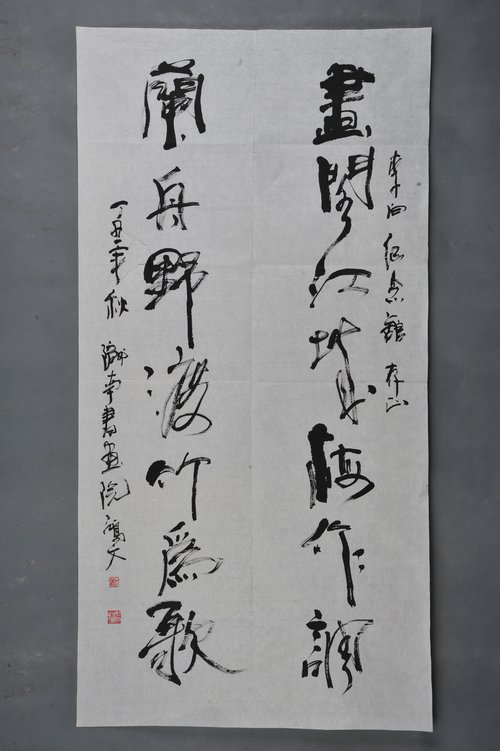 李白纪念館存正
畫閣江城梅作調
蘭舟野渡竹爲歌
丁丑年秋 劍南書画院